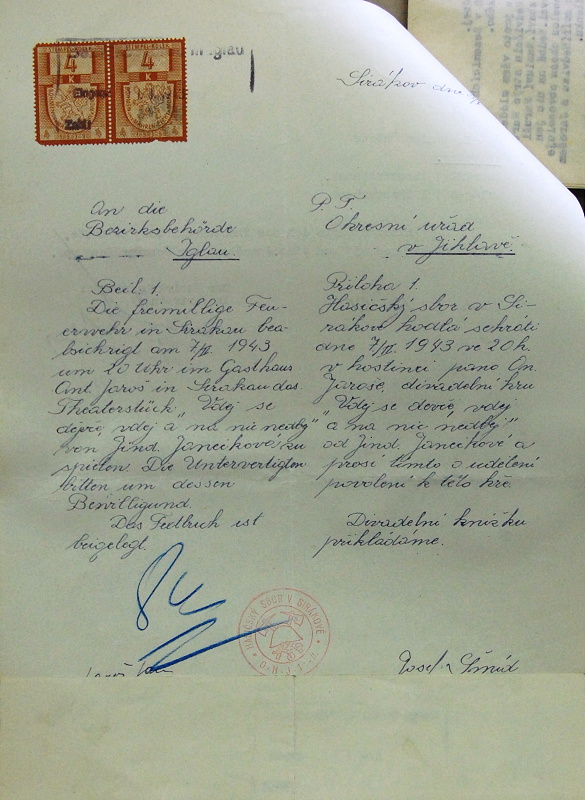 STEMPEL-KOLEK STEMPEL-KOLEK
4 4
K K
in Iglau
Sirákov dne
An die
Bezirksbehörde
Iglau.
Beil 1.
Die freiwillige Feu-
erwehr in Sirakau bea-
bsichtigt am 7/II. 1943
um 20 Uhr im Gasthaus
Ant. Jaroš in Sirakau das
Theaterstück „Vdej se
děvče, vdej a na nic nedbej"
von Jind. Janečkové zu
spielen. Die Unterfertigten
bitten um dessen
Bewilligund.
Das Textbuch ist
beigelegt.
P. T.
Okresní úřad
v Jihlavě.
Příloha 1.
Hasičský sbor v Si-
rákově hodlá sehráti
dne 7/II. 1943 ve 20 h.
v hostinci pana An.
Jaroše, divadelní hru
„Vdej se děvče, vdej
a na nic nedbej"
od Jind. Janečkové a
prosí tímto o udělení
povolení k této hře.
Divadelní knížku
přikládáme.
HASIČSKÝ SBOR V SIRÁKOVĚ
Josef Šmíd